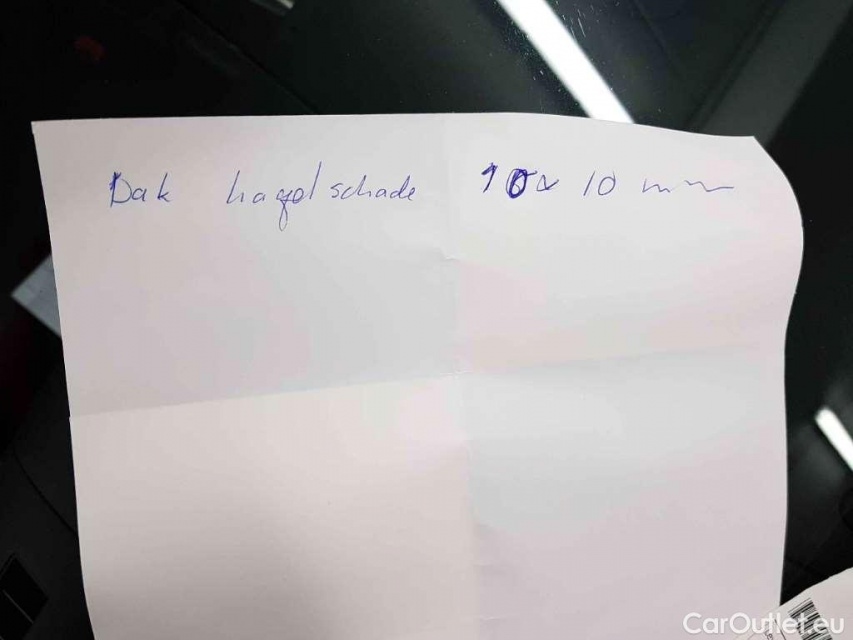 Dak hagelschade 10x 10 mm
CarOutlet.eu